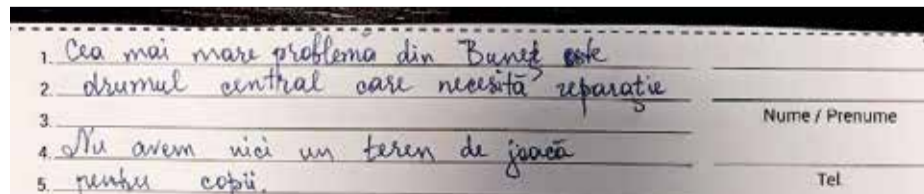 1. Cea mai mare problemă din Buneț este
2. drumul central care necesită reparație
3.
Nume / Prenume
4. Nu avem nici un teren de joacă
5. pentru copii.
Tel